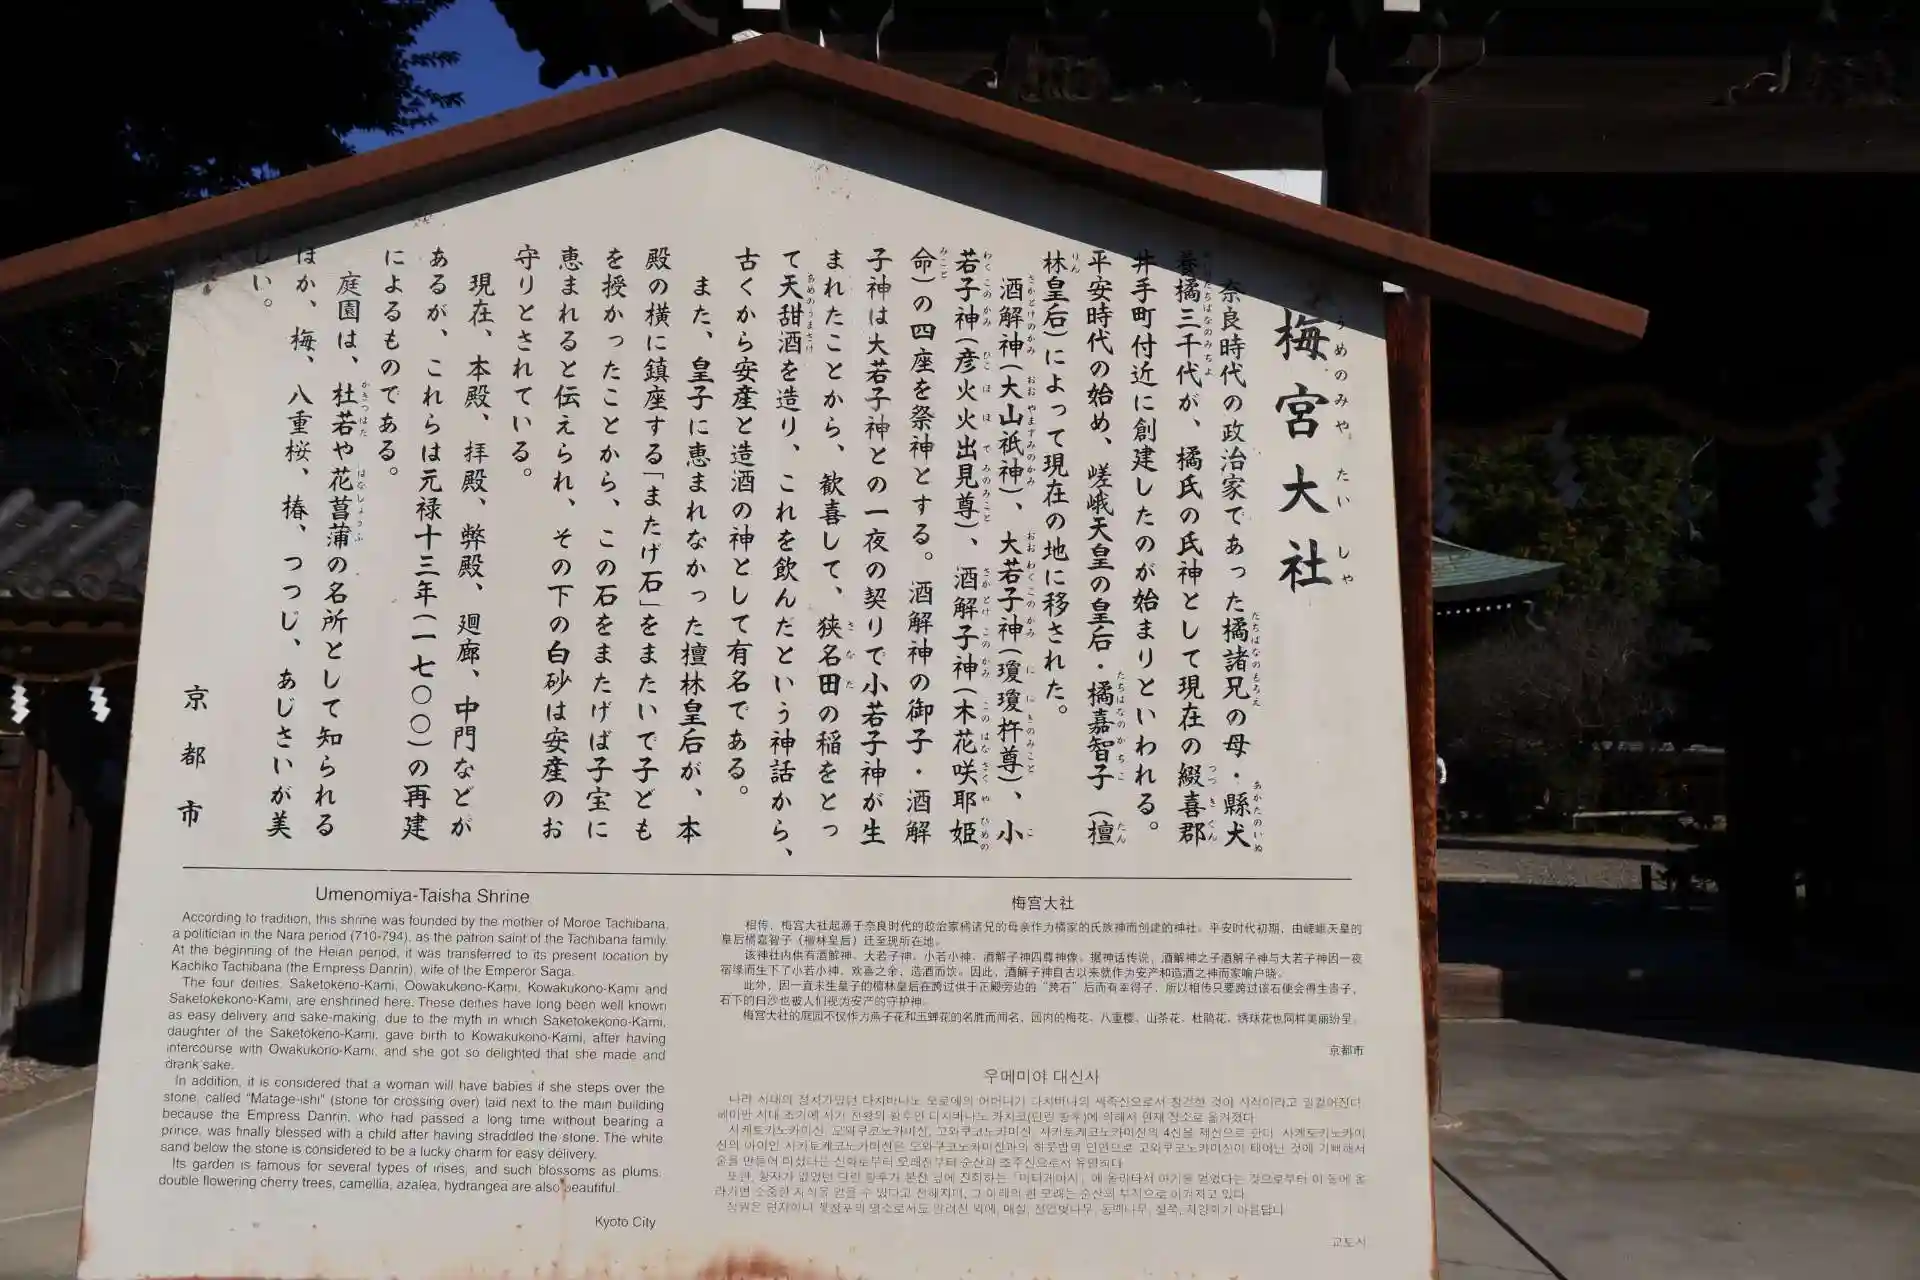 梅宮大社
うめのみや たいしゃ
奈良時代の政治家であった橘諸兄の母・縣犬
養橘三千代が、橘氏の氏神として現在の綴喜郡
井手町付近に創建したのが始まりといわれる。
平安時代の始め、嵯峨天皇の皇后・橘嘉智子（檀
林皇后）によって現在の地に移された。
酒解神（大山祇神）、大若子神（瓊瓊杵尊）、小
若子神（彦火火出見尊）、酒解子神（木花咲耶姫
命）の四座を祭神とする。酒解神の御子・酒解
子神は大若子神との一夜の契りで小若子神が生
まれたことから、歓喜して、狭名田の稲をとっ
て天甜酒を造り、これを飲んだという神話から、
古くから安産と造酒の神として有名である。
また、皇子に恵まれなかった檀林皇后が、本
殿の横に鎮座する「またげ石」をまたいで子ども
を授かったことから、この石をまたげば子宝に
恵まれると伝えられ、その下の白砂は安産のお
守りとされている。
現在、本殿、拝殿、弊殿、廻廊、中門などが
あるが、これらは元禄十三年（一七〇〇）の再建
によるものである。
庭園は、杜若や花菖蒲の名所として知られる
ほか、梅、八重桜、椿、つつじ、あじさいが美
しい。
京都市
Umenomiya-Taisha Shrine
According to tradition, this shrine was founded by the mother of Moroe Tachibana,
a politician in the Nara period (710-794), as the patron saint of the Tachibana family.
At the beginning of the Heian period, it was transferred to its present location by
Kachiko Tachibana (the Empress Danrin), wife of the Emperor Saga.
The four deities, Saketokeno-Kami, Oowakukono-Kami, Kowakukono-Kami and
Saketokekono-Kami, are enshrined here. These deities have long been well known
as easy delivery and sake-making, due to the myth in which Saketokekono-Kami,
daughter of the Saketokeno-Kami, gave birth to Kowakukono-Kami, after having
intercourse with Owakukono-Kami, and she got so delighted that she made and
drank sake.
In addition, it is considered that a woman will have babies if she steps over the
stone, called "Matage-ishi" (stone for crossing over) laid next to the main building
because the Empress Danrin, who had passed a long time without bearing a
prince, was finally blessed with a child after having straddled the stone. The white
sand below the stone is considered to be a lucky charm for easy delivery.
Its garden is famous for several types of irises, and such blossoms as plums,
double flowering cherry trees, camellia, azalea, hydrangea are also beautiful.
Kyoto City
梅宫大社
相传，梅宫大社起源于奈良时代的政治家橘诸兄的母亲作为橘家的氏族神而创建的神社。平安时代初期，由嵯峨天皇的
皇后橘嘉智子（檀林皇后）迁至现所在地。
该神社内供有酒解神、大若子神、小若小神、酒解子神四尊神像。据神话传说，酒解神之子酒解子神与大若子神因一夜
宿缘而生下了小若小神，欢喜之余，造酒而饮。因此，酒解子神自古以来就作为安产和造酒之神而家喻户晓。
此外，因一直未生皇子的檀林皇后在跨过供于正殿旁边的“跨石”后而有幸得子，所以相传只要跨过该石便会得生贵子，
石下的白沙也被人们视为安产的守护神。
梅宫大社的庭园不仅作为燕子花和玉蝉花的名胜而闻名，园内的梅花、八重樱、山茶花、杜鹃花、绣球花也同样美丽纷呈。
京都市
우메미야 대신사
나라 시대의 정치가였던 다치바나노 모로에의 어머니가 다치바나의 씨족신으로서 창건한 것이 시작이라고 일컬어진다.
헤이안 시대 초기에 사가 천황의 황후인 다치바나노 카치코(단린 황후)에 의해서 현재 장소로 옮겨졌다.
사케토키노카미신, 오와쿠코노카미신, 고와쿠코노카미신, 사키토케코노카미신의 4신을 제신으로 한다. 사케토키노카미
신의 아이인 사카토케코노카미신은 오와쿠코노카미신과의 하룻밤의 인연으로 고와쿠코노카미신이 태어난 것에 기뻐해서
술을 만들어 마셨다는 신화로부터 오래전부터 순산과 조주신으로서 유명하다.
교토시